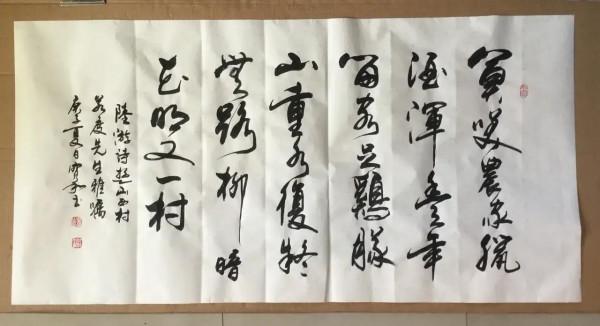 莫笑農家臘
酒渾豐年
留客足鷄豚
山重水復疑
無路柳暗
花明又一村
陸游诗遊山西村
先生雅嘱
庚子夏日